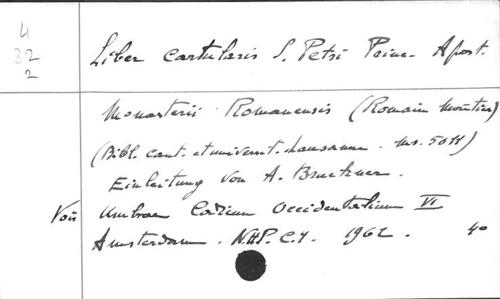 4
32
2
Liber cartularis S. Petri Princ. Apost.
Monasterii Romanensis (Romain Moutier)
(Bibl. cant. et universit. Lausanne. Ms. 5011)
Einleitung von A. Bruckner.
Umbrae Codicum Occidentalium VI
Amsterdam. N.H.P.C.Y. 1962. 40